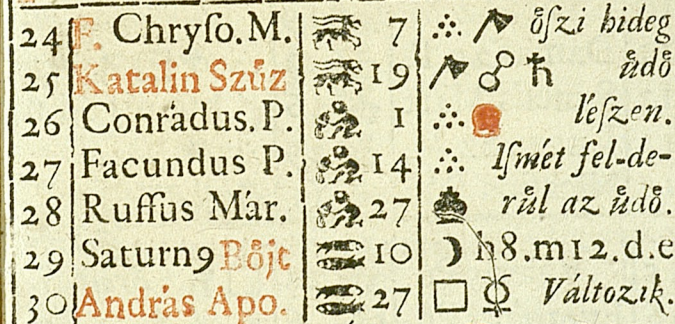 24 F. Chryſo. M. 7 őſzi hideg
25 Katalin Szűz 19 ☍ ♄ üdő
26 Conrádus. P. 1 léſzen.
27 Facundus P. 14 Iſmét fel-de-
28 Ruffus Már. 27 rűl az üdő.
29 Saturn9 Bőjt 10 ☽ h8.m12.d.e
30 András Apo. 27 □ ☿ Változik.